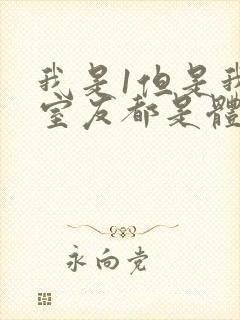 我是1但是我
室友都是體
永向党